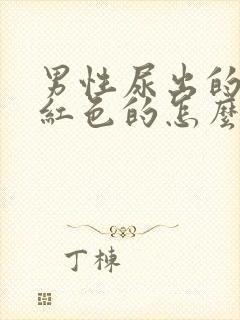 男性尿出的
紅色的怎麼
丁棟